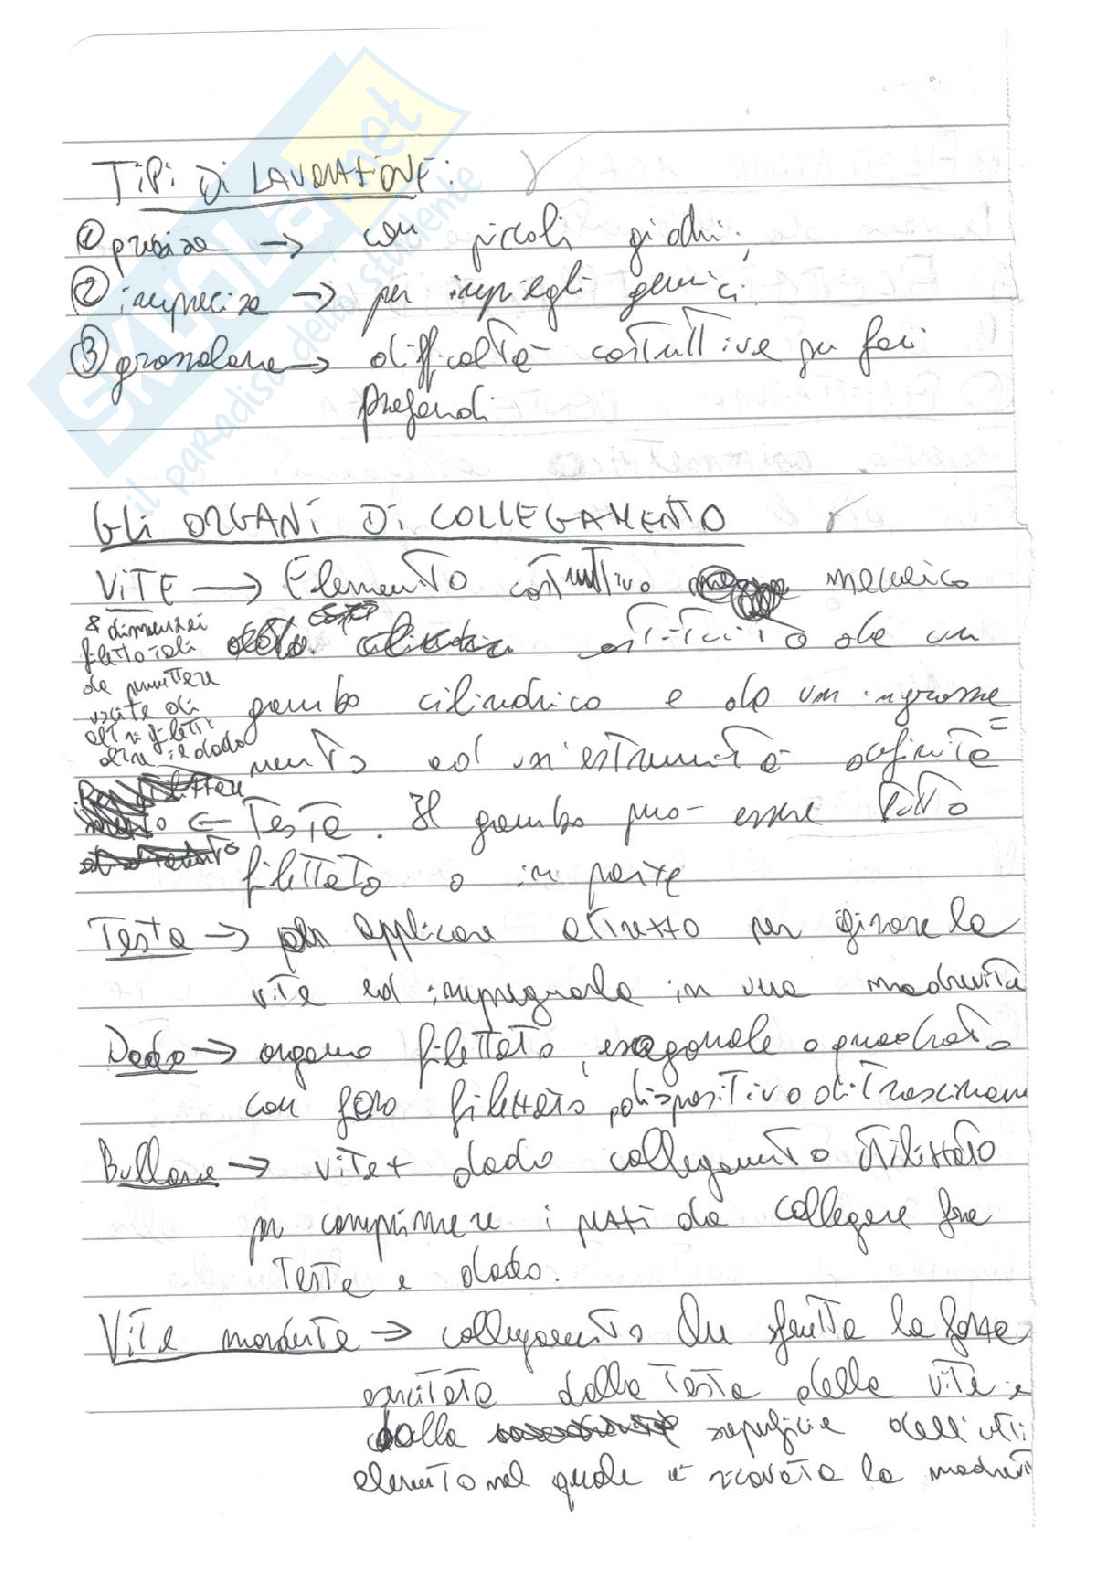 TiPi Di LAVORAZIONE:
① precisa → con piccoli giochi;
② imprecisa → per impieghi generici
③ grossolana → difficoltà costruttive per fori
profondi
GLi ORGANi Di COLLEGAMENTO
ViTE → Elemento costruttivo meccanico
costituito da un
gambo cilindrico e da un ingrossa=
mento ad un'estremità definita
& dimensioni
filettatoli
da permettere
uscita di
altri filetti
oltre il dado
← Testa. Il gambo può essere tutto
filettato o in parte
Testa → applicare attrezzo per girare la
vite ed impegnarla in una madrevite
Dado → organo filettato, esagonale o quadrato
con foro filettato, dispositivo di trascinam
Bullone → vite + dado collegamento filettato
per comprimere i pezzi da collegare fra
Testa e dado.
Vite mordente → collegamento che sfrutta la forza
esercitata dalla Testa della vite e
dalla superficie dell'ulti
elemento nel quale è ricavata la madrevit
SKUOLA.net
il paradiso dello studente